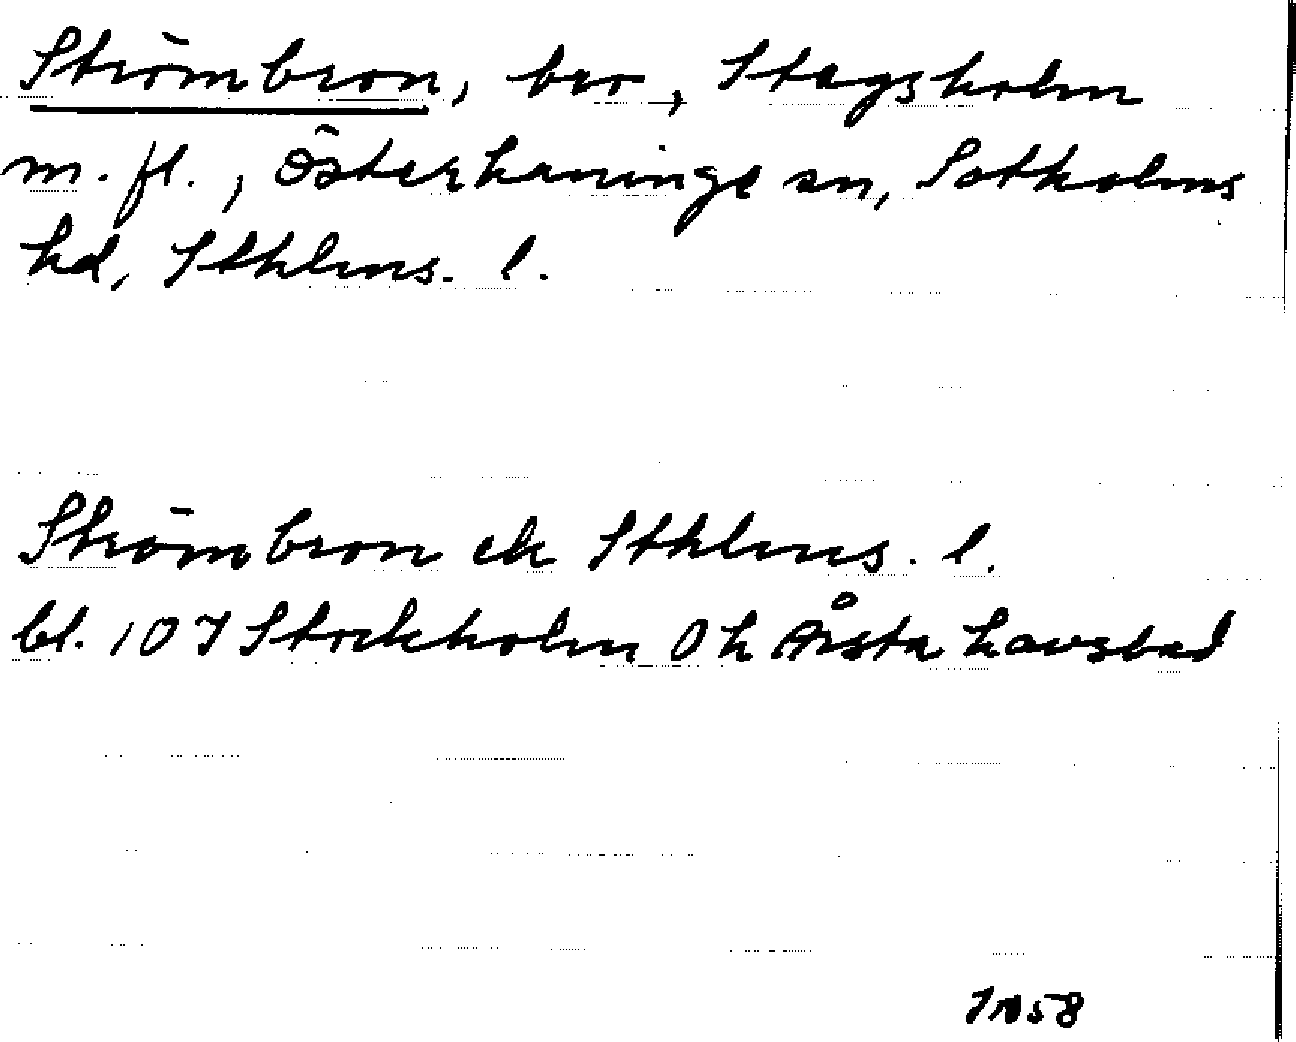 Strömbron, bro, Stegsholm
m. fl., Österhaninge sn, Sotholms
hd, Sthlms. l.
Strömbron ek Sthlms. l.
bl. 107 Stockholm Oh Årsta havsbad